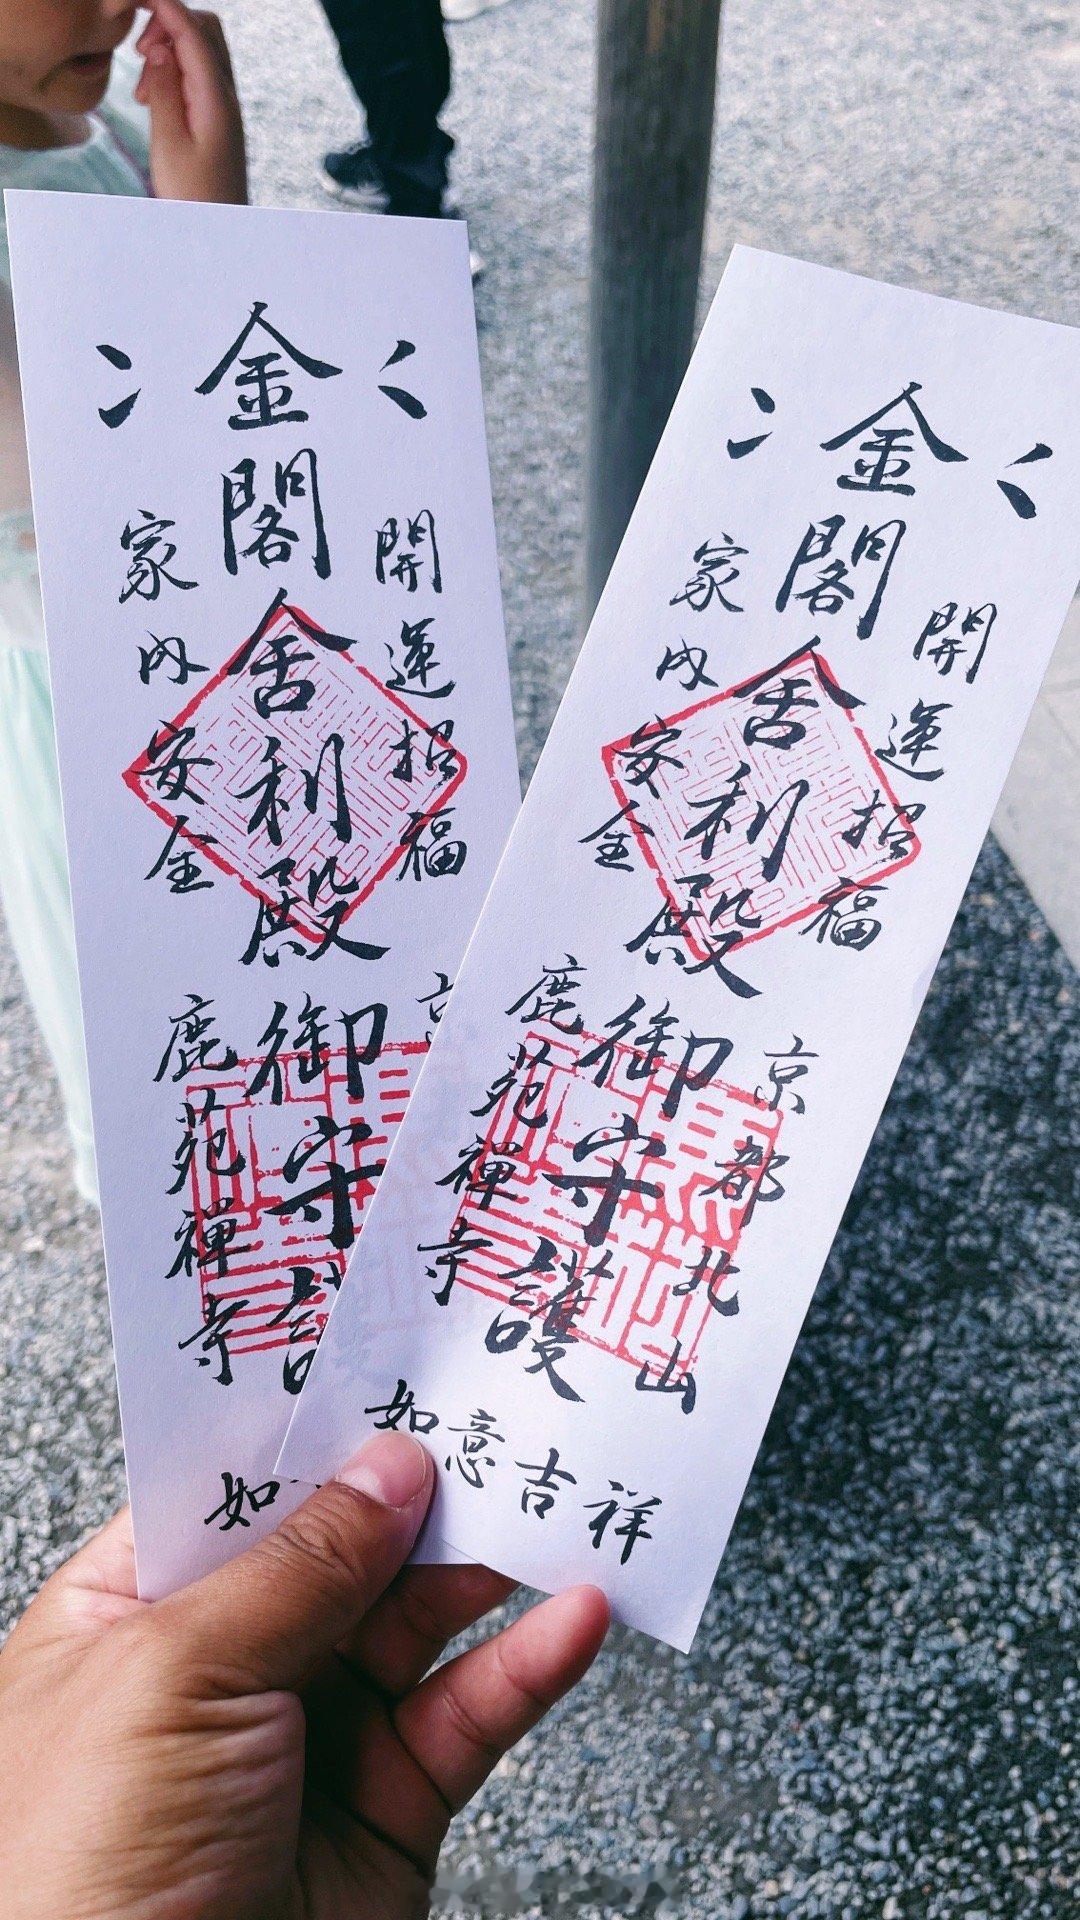 金閣舍利殿御守護
開運招福
家内安全
京都北山
鹿苑禅寺
如意吉祥
金閣舍利殿御守護
開運招福
家内安全
京
鹿苑禅寺
如